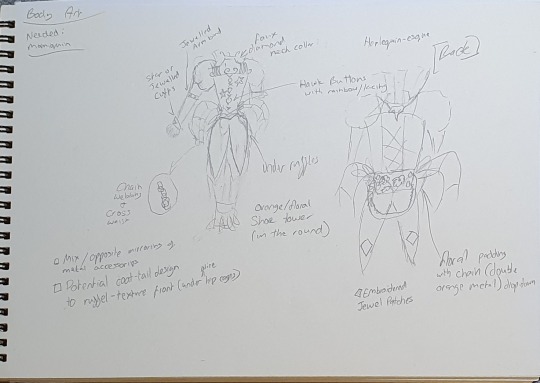 Body Art
Needed:
mannequin
Jewelled
Armband
Star or
Jewelled
Cuffs
faux
diamond
neck collar
Harlequin-esque
[Back]
Hawk Buttons
with rainbow
under ruffles
Chain
webbing
+
Cross
waist
Orange/floral
Shoe tower
(in the round)
Mix/opposite mirroring of
metal accessories
Potential coat-tail design
to ruffel-texture front (under hip cages)
Embroidered
Jewel Patches
floral padding
with chain (double
orange metal) dropdown